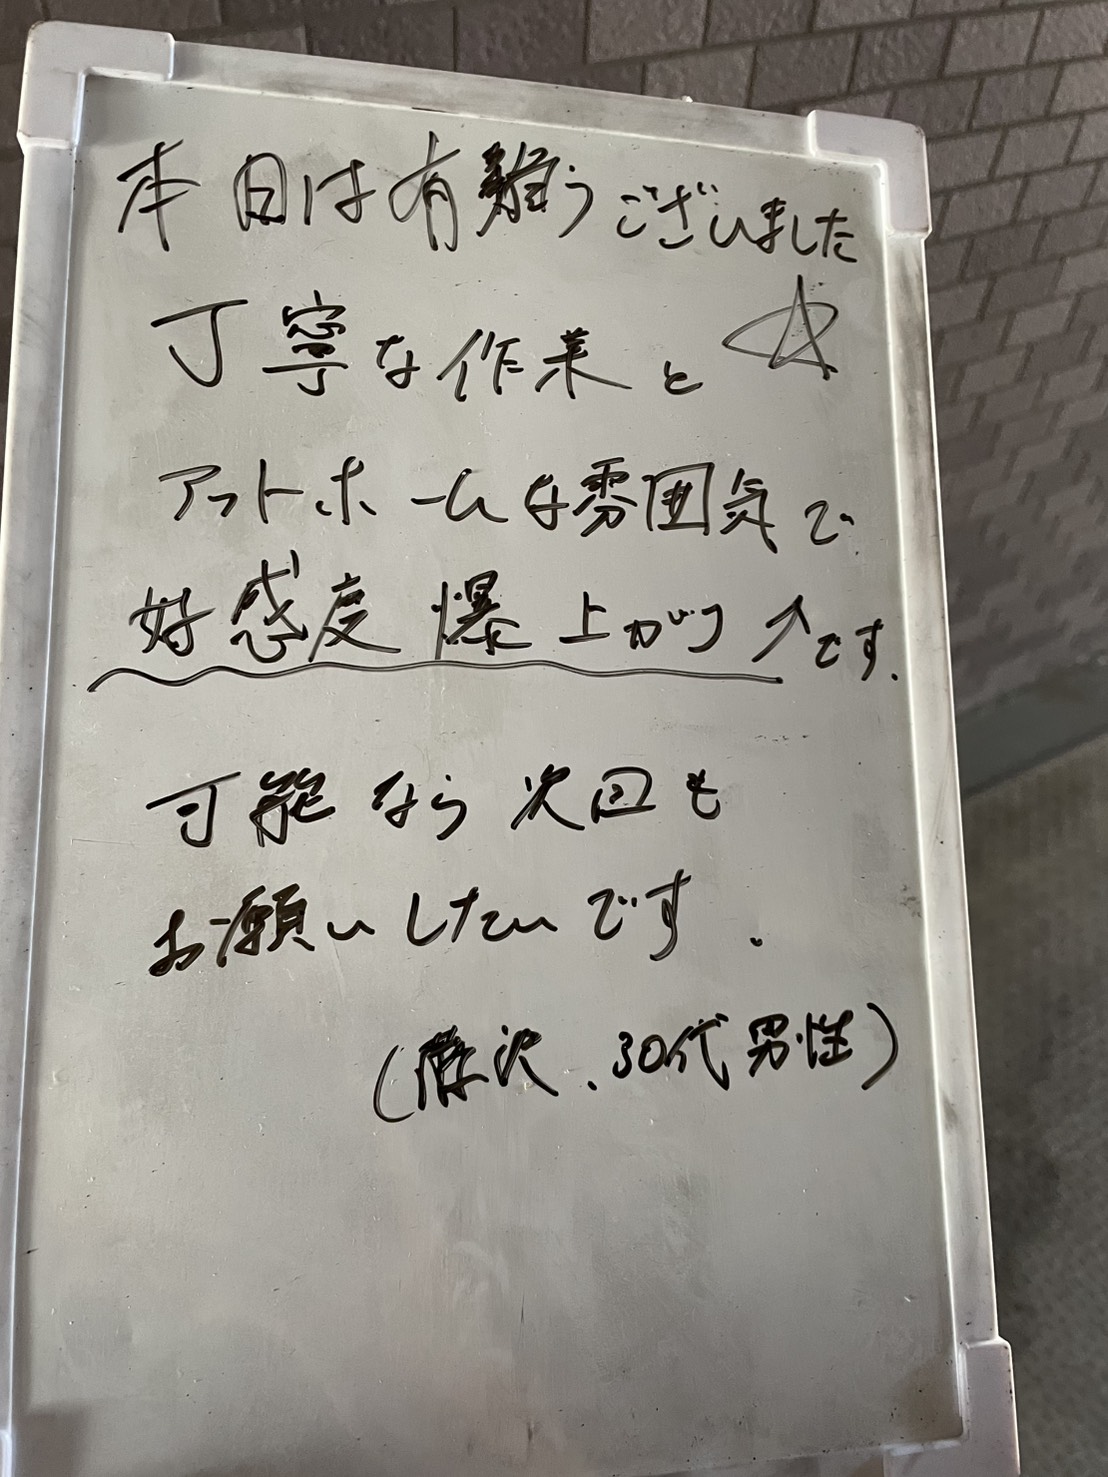 本日は有難うございました
丁寧な作業と☆
アットホームな雰囲気で
好感度爆上がり↗です.
可能なら次回も
お願いしたいです.
(藤沢、30代男性)